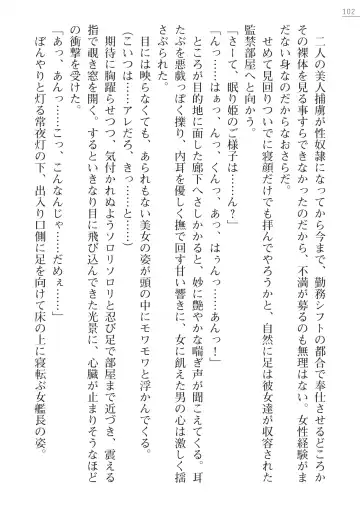 102
二人の美人捕虜が性奴隷になってから今まで、勤務シフトの都合で奉仕させるどころか
その裸体を見る事すらできなかったのだから、不満が募るのも無理はない。女性経験がま
だない身なのだからなおさらだ。
せめて見回りついでに寝顔だけでも拝んでやろうかと、自然に足は彼女達が収容された
監禁部屋へと向かう。
「さーて、眠り姫のご様子は……ん?
「んっ……はぁっ、んっ、くんっ、あっ、はぅんっ……あんっ!」
ところが目的地に面した廊下へさしかかると、妙に艶やかな喘ぎ声が聞こえてくる。耳
たぶを悪戯っぽく擽り、内耳を優しく撫で回す甘い響きに、女に飢えた男の心は激しく揺
さぶられた。
目には映らなくても、あられもない美女の姿が頭の中にモワモワと浮かんでくる。
(こいつは……アレだろ。きっと……)
期待に胸躍らせつつ、気付かれぬようソロリソロリと忍び足で部屋まで近づき、震える
指で覗き窓を開く。するといきなり目に飛び込んできた光景に、心臓が止まりそうなほど
の衝撃を受けた。
「あっ、あんっ……こっ、こんなんじゃ……だめぇ……」
ぼんやりと灯る常夜灯の下、出入り口側に足を向けて床の上に寝転ぶ女艦長の姿。